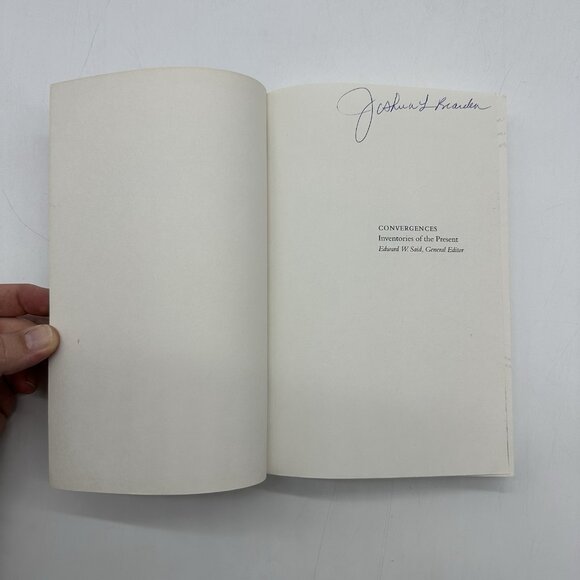 Joshua L Bearden
CONVERGENCES
Inventories of the Present
Edward W. Said, General Editor